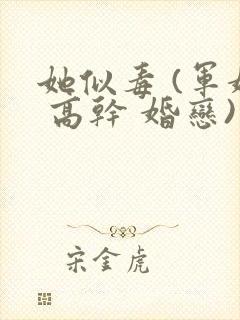 她似毒(軍婚
高幹 婚戀)
宋金虎